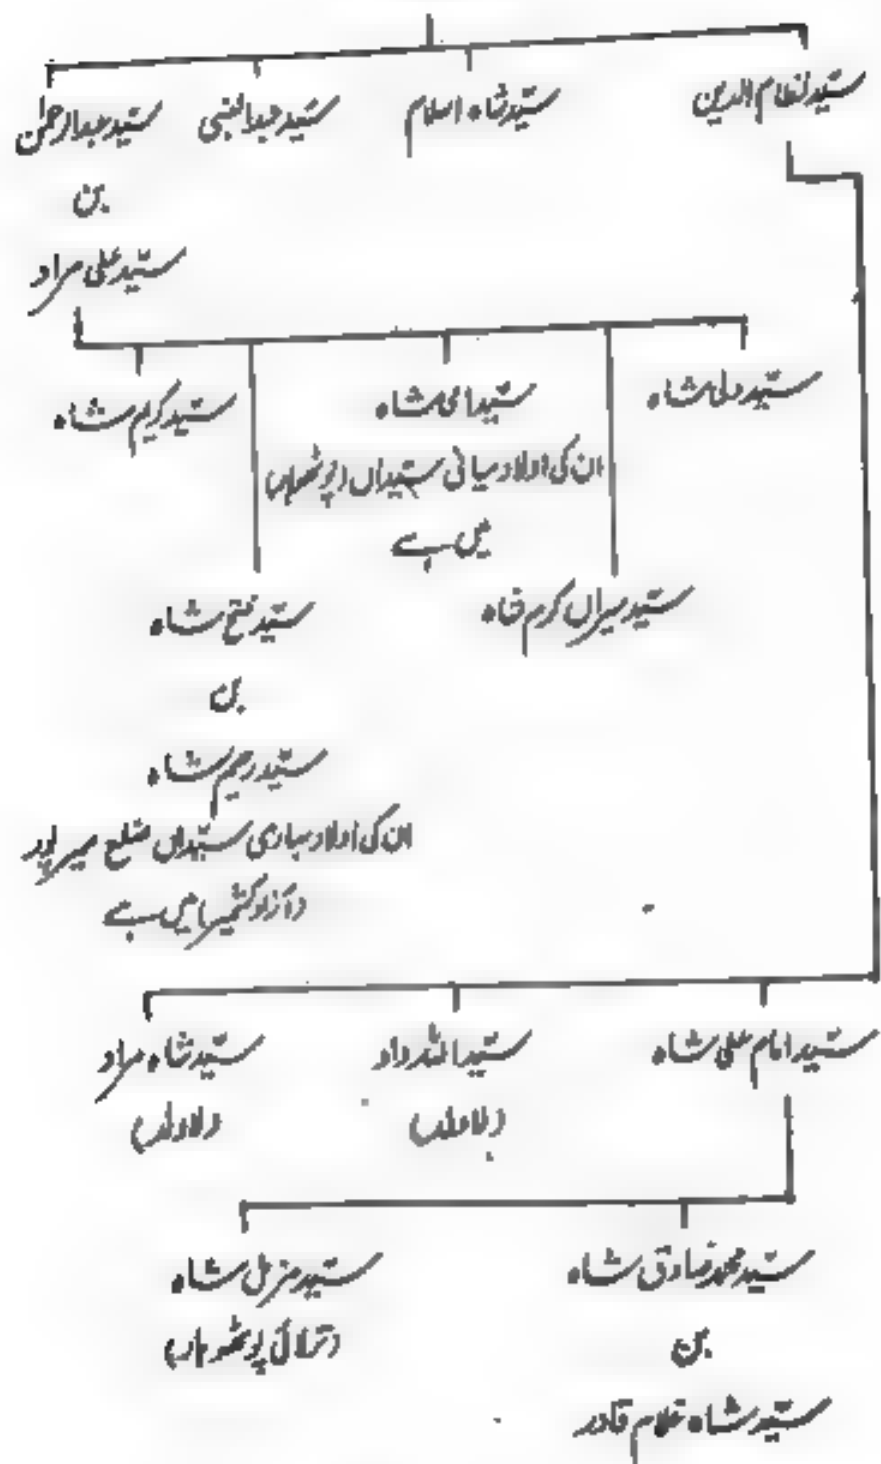 سید نظام الدین
سید شاہ اسلام
سید عبدالنبی
سید عبدالرحمٰن
بن
سید علی مراد
سید ولی شاہ
سید میراں کرم شاہ
سید امی شاہ
ان کی اولاد میانی سیداں (پوٹھوہار)
میں ہے
سید فتح شاہ
بن
سید رحیم شاہ
ان کی اولاد سیداں ضلع میرپور
(آزاد کشمیر) میں ہے
سید کریم شاہ
سید امام علی شاہ
سید اللہ داد
(لاولد)
سید شاہ مراد
(لاولد)
سید محمد صادق شاہ
بن
سید شاہ غلام قادر
سید مزمل شاہ
(پوٹھوہار)